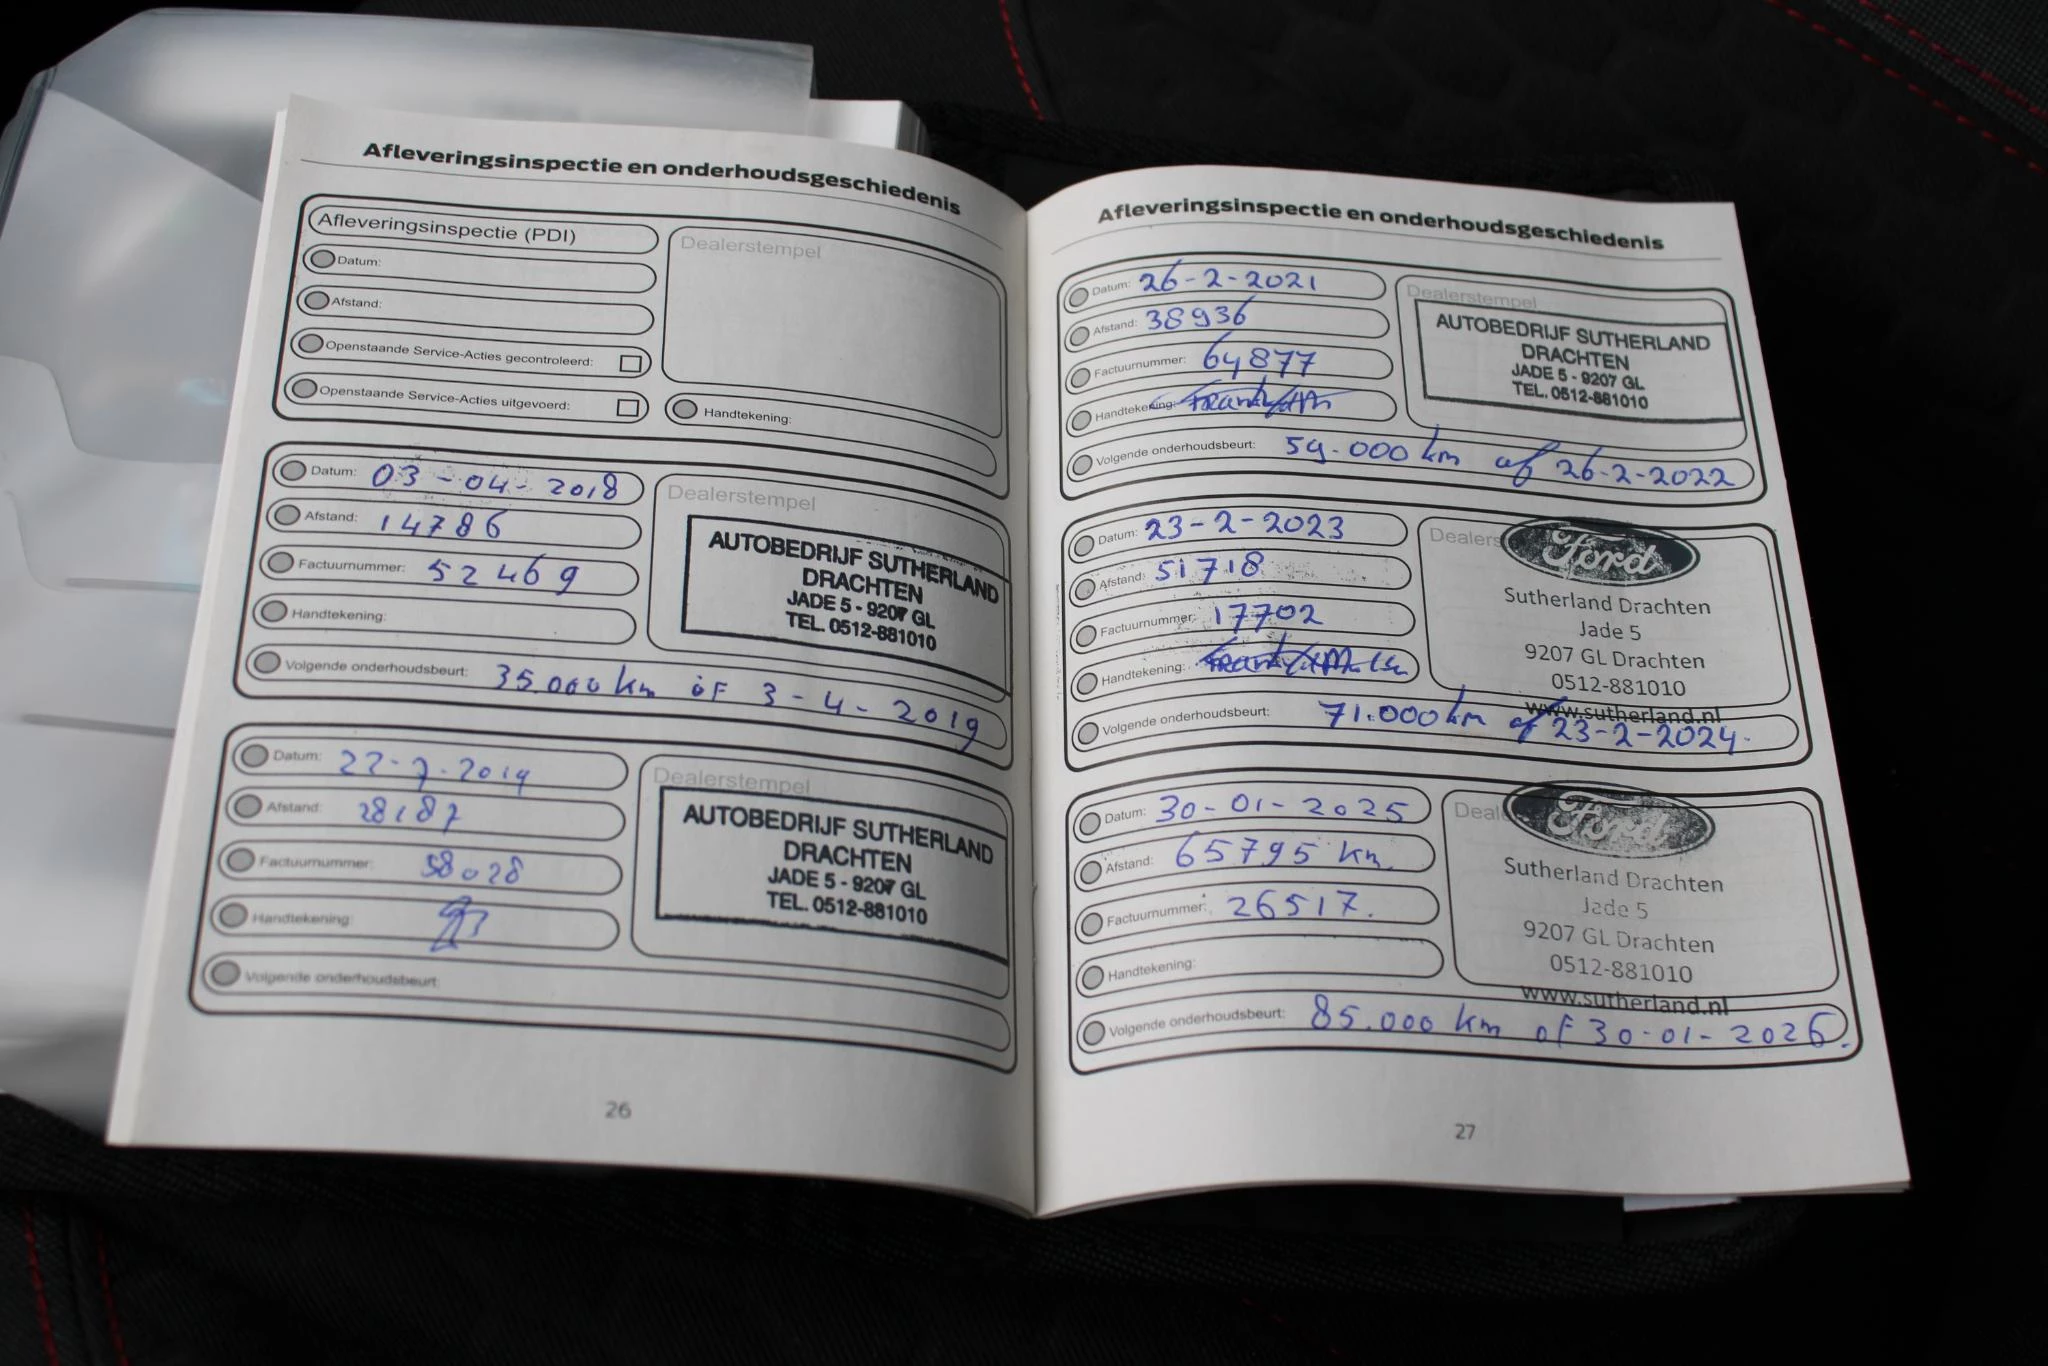 Afleveringsinspectie en onderhoudsgeschiedenis
Afleveringsinspectie (PDI)
Datum:
Afstand:
Openstaande Service-Acties gecontroleerd:
Openstaande Service-Acties uitgevoerd:
Dealerstempel
Handtekening:
Datum: 03-04-2018
Afstand: 14786
Factuurnummer: 52469
Handtekening:
Volgende onderhoudsbeurt: 35.000 km òf 3-4-2019
Dealerstempel
AUTOBEDRIJF SUTHERLAND
DRACHTEN
JADE 5 - 9207 GL
TEL. 0512-881010
Datum: 22-7-2019
Afstand: 28187
Factuurnummer: 58028
Handtekening:
Volgende onderhoudsbeurt:
Dealerstempel
AUTOBEDRIJF SUTHERLAND
DRACHTEN
JADE 5 - 9207 GL
TEL. 0512-881010
26
Afleveringsinspectie en onderhoudsgeschiedenis
Datum: 26-2-2021
Afstand: 38936
Factuurnummer: 64877
Handtekening:
Volgende onderhoudsbeurt: 59.000 km of 26-2-2022
Dealerstempel
AUTOBEDRIJF SUTHERLAND
DRACHTEN
JADE 5 - 9207 GL
TEL. 0512-881010
Datum: 23-2-2023
Afstand: 51718
Factuurnummer: 17702
Handtekening:
Volgende onderhoudsbeurt: 71.000 km of 23-2-2024.
Dealers
Ford
Sutherland Drachten
Jade 5
9207 GL Drachten
0512-881010
www.sutherland.nl
Datum: 30-01-2025
Afstand: 65795 km.
Factuurnummer: 26517.
Handtekening:
Volgende onderhoudsbeurt: 85.000 km of 30-01-2026.
Deale
Ford
Sutherland Drachten
Jade 5
9207 GL Drachten
0512-881010
www.sutherland.nl
27